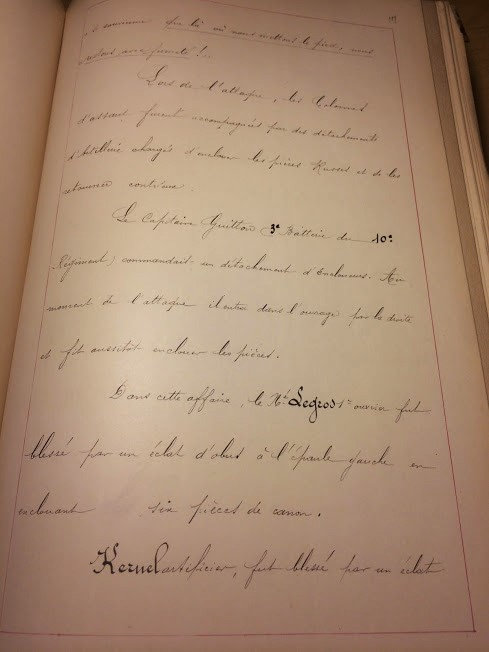 se souvienne que là où nous mettons le pied, nous
restons avec fermeté !..
Lors de l'attaque, les Colonnes
d'assaut furent accompagnés par des détachements
d'Artillerie chargés d'enclouer les pièces Russes et de les
retourner contr'eux.
Le Capitaine Guitton 3e Batterie du 10e
Régiment) commandait un détachement d'Encloueurs. Au
moment de l'attaque il entra dans l'ouvrage par la droite
et fit aussitôt enclouer les pièces.
Dans cette affaire, le Legros 1er ouvrier fut
blessé par un éclat d'obus à l'épaule gauche en
enclouant six pièces de canon.
Kernel artificier, fut blessé par un éclat